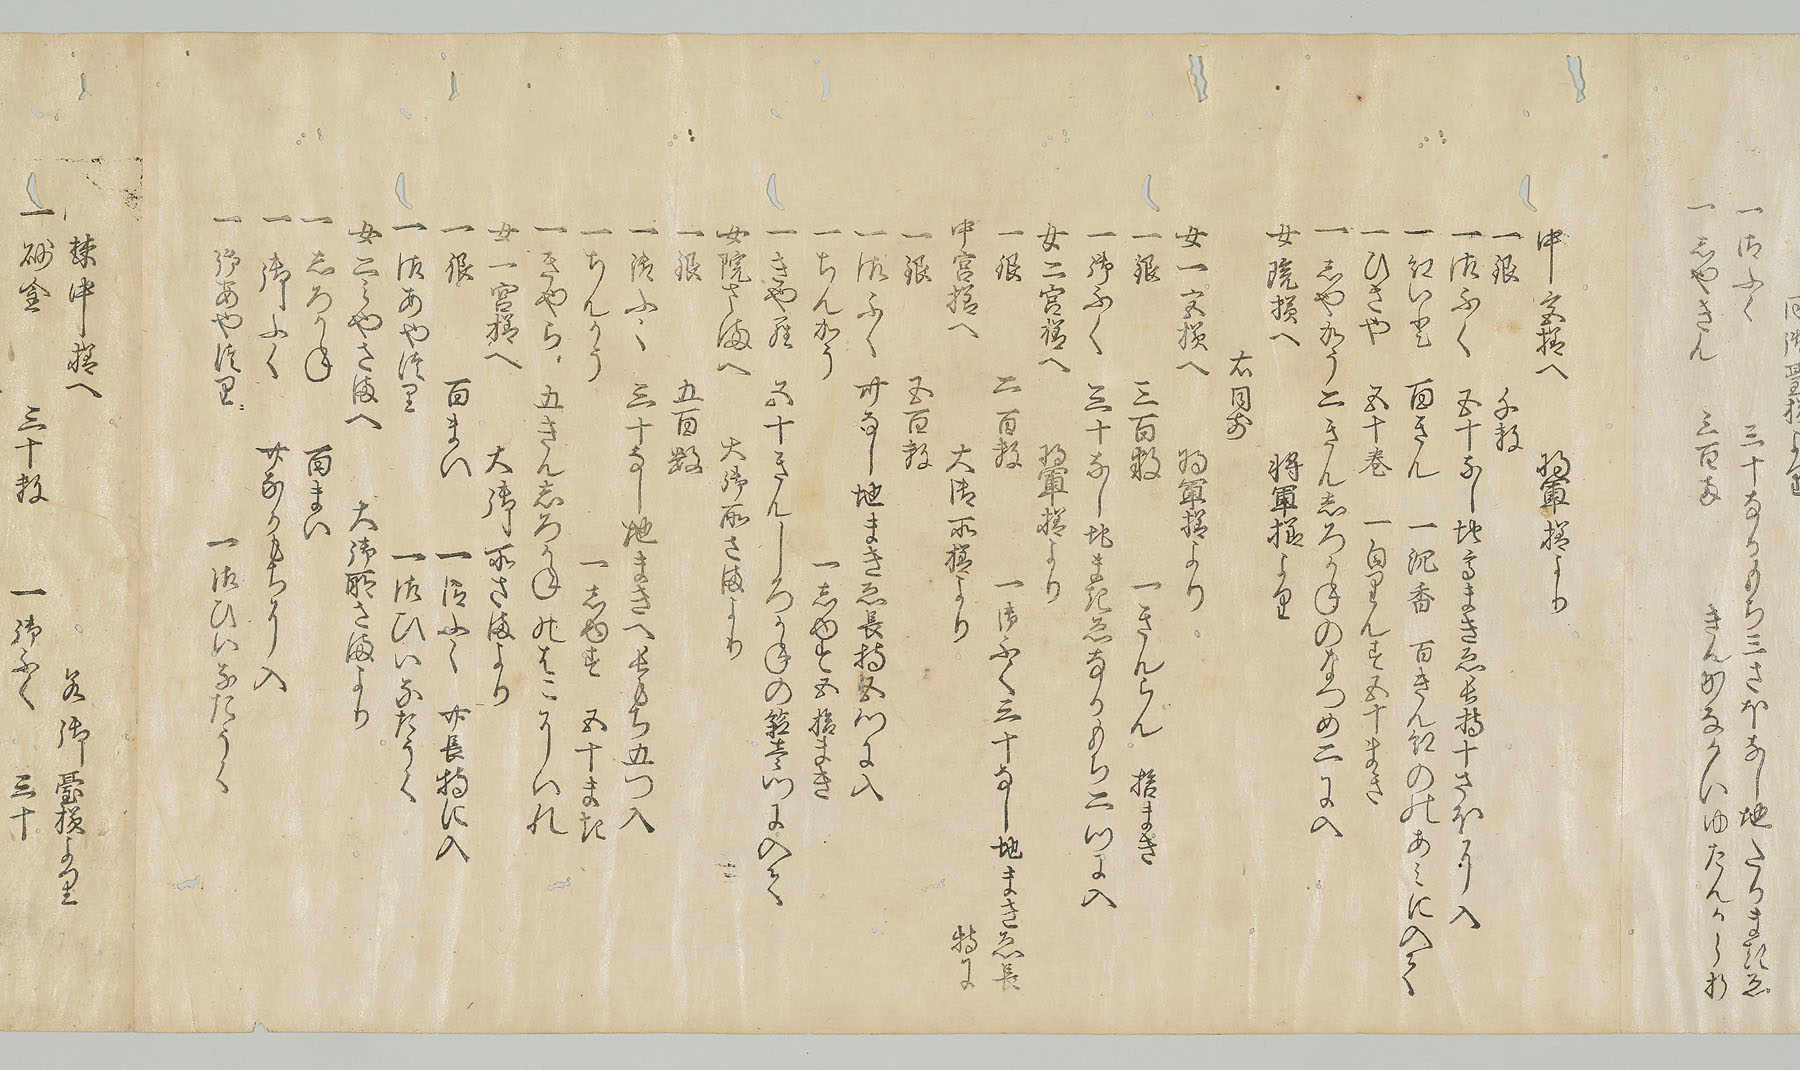 同御臺様より
一御ふく　三十ながもち三さほなし地たかまきゑ
一しやきん　三百両　きんがながいゆたんかゝり
中宮様へ　将軍様より
一銀　千枚
一御ふく　五十なし地高まきゑ長持十さほに入
一紅いと　百きん　一沈香　百きん紅のあみに入て
一ひさや　五十巻　一白りんす五十まき
一しやかう二きんしろかねのなつめ二に入
女院様へ　将軍様より
右同前
女一宮様へ　将軍様より
一銀　三百枚　一きんらん　拾まき
一御ふく　三十なし地まきゑながもち二つに入
女二宮様へ　将軍様より
一銀　二百枚　一御ふく三十なし地まきゑ長
持に
中宮様へ　大御所様より
一銀　五百枚
一御ふく　廿なし地まきゑ長持五つに入
一ちんかう　一しゆす五拾まき
一きやら　五十きんしろかねの箱壱つに入て
女院さまへ　大御所さまより
一銀　五百数
一御ふく　三十なし地まきへ長もち五つ入
一ちんかう　一しゆす　五十まき
一きやら　五きんしろかねのはこにいれ
女一宮様へ　大御所さまより
一銀　百まい　一御ふく　廿長持に入
一御あやつり　一御ひいなたうく
女二みやさまへ　大御所さまより
一しろかね　百まい
一御ふく　廿ながもちに入
一御あやつり　一御ひいなたうく
禁中様へ　若御臺様より
一砂金　三十枚　一御ふく　三十